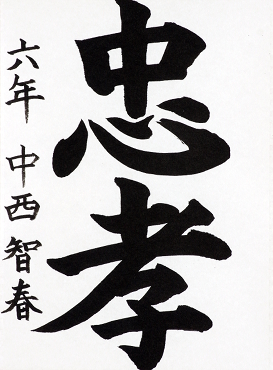 忠孝
六年 中西智春